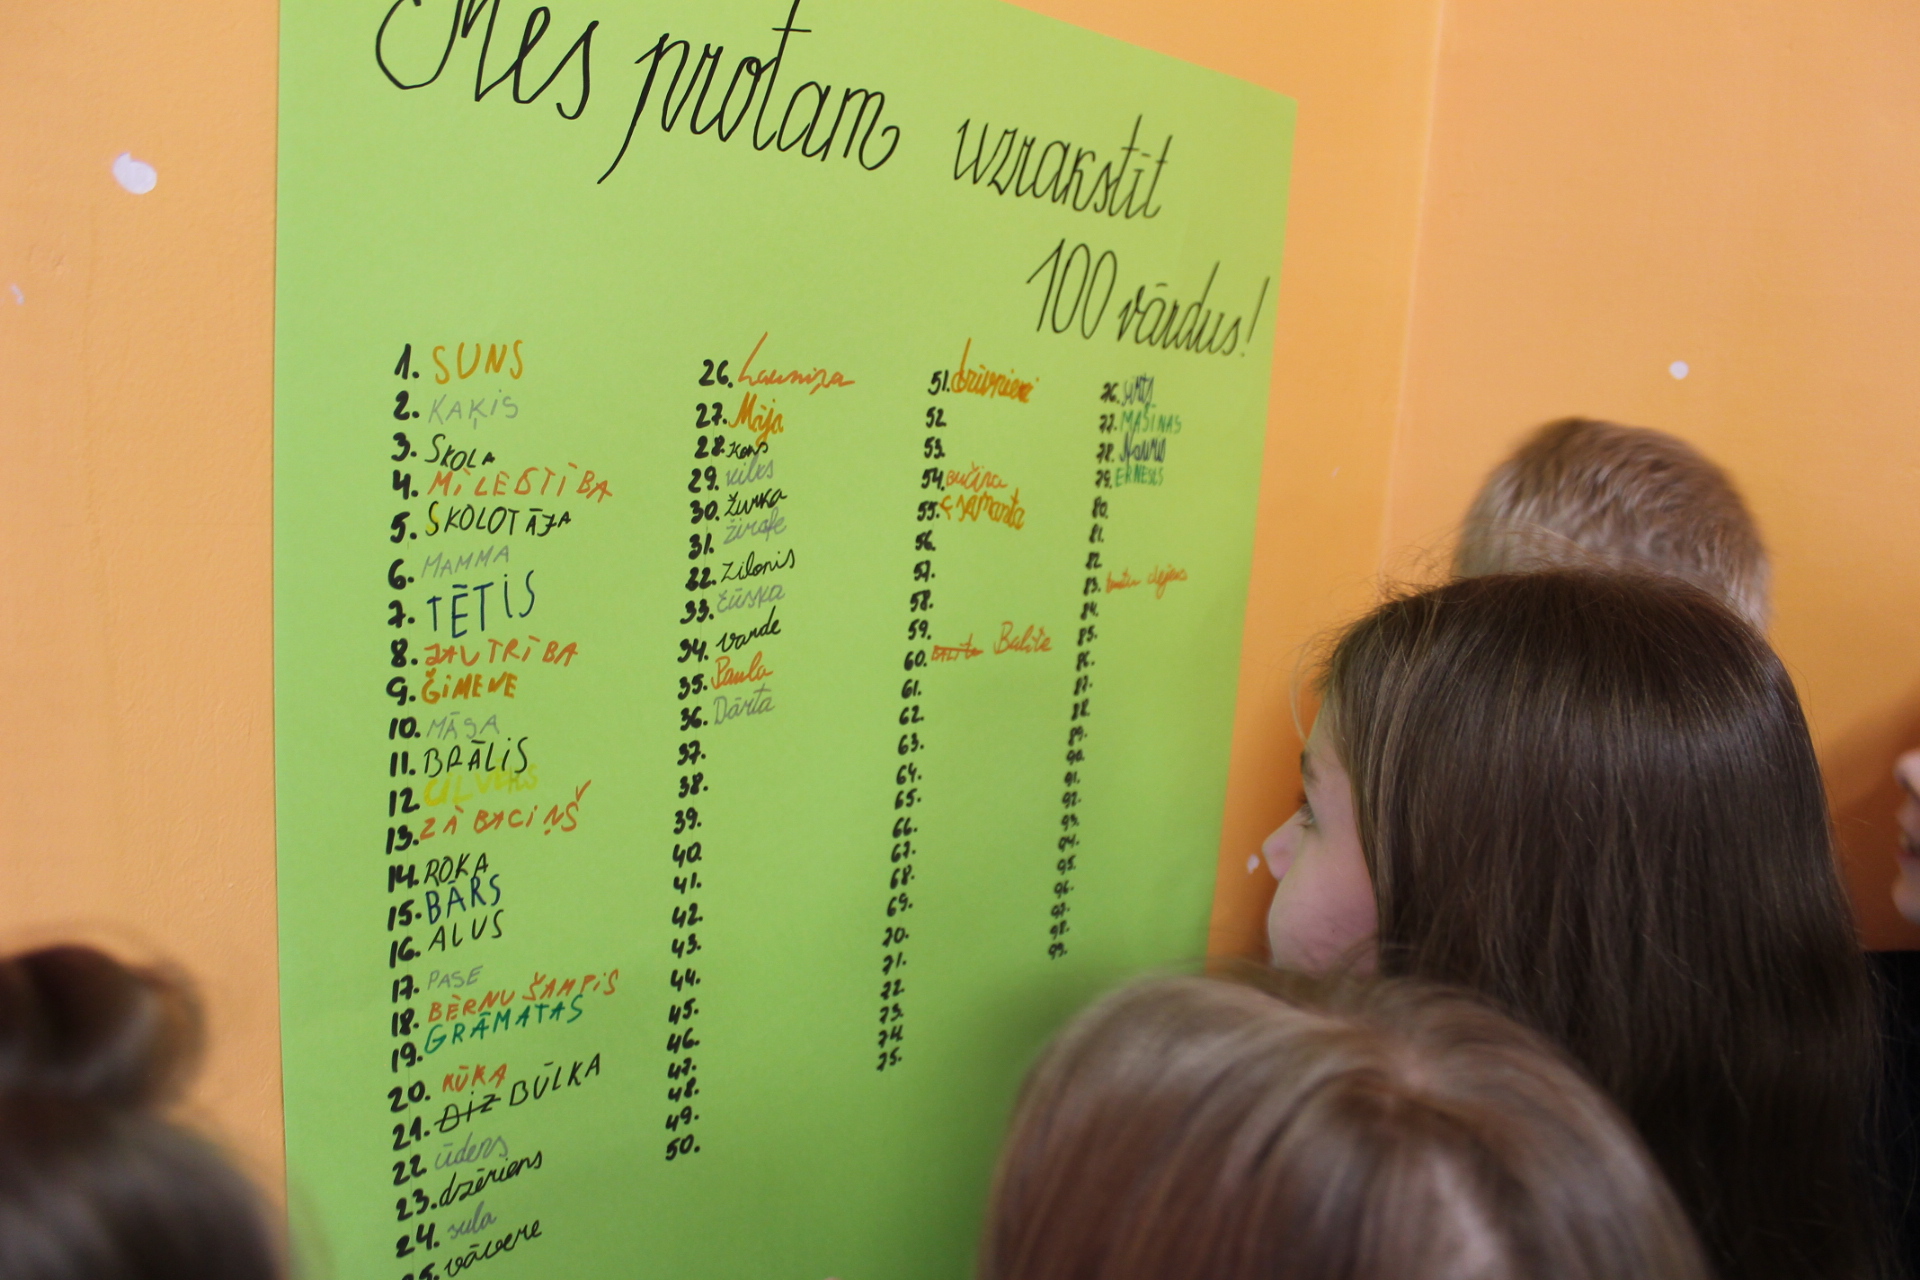 Mes protam uzrakstīt
100 vārdus!
1. SUNS
2. KAĶIS
3. SKOLA
4. MĪLESTĪBA
5. SKOLOTĀJA
6. MAMMA
7. TĒTIS
8. JAUTRĪBA
9. ĞIMENE
10. MĀSA
11. BRĀLIS
12. CILVĒKS
13. ZĀBACIŅŠ
14. ROKA
15. BĀRS
16. ALUS
17. PASE
18. BĒRNU ŠAMPIS
19. GRĀMATAS
20. KŪKA
21. DIZ BŪLKA
22. ūdens
23. dzēriens
24. sula
25. vāvere
26.
27. Māja
28.
29. vilks
30. žurka
31. žirafe
22. zilonis
33. čūska
34. varde
35. Paula
36. Dārta
37.
38.
39.
40.
41.
42.
43.
44.
45.
46.
47.
48.
49.
50.
51. dzīvnieki
52.
53.
54.
55.
56.
57.
58.
59.
60. Balite
61.
62.
63.
64.
65.
66.
67.
68.
69.
70.
71.
72.
73.
74.
75.
76.
77. MAŠINAS
78.
79. ERNESTS
80.
81.
82.
83.
84.
85.
86.
87.
88.
89.
90.
91.
92.
93.
94.
95.
96.
97.
98.
99.